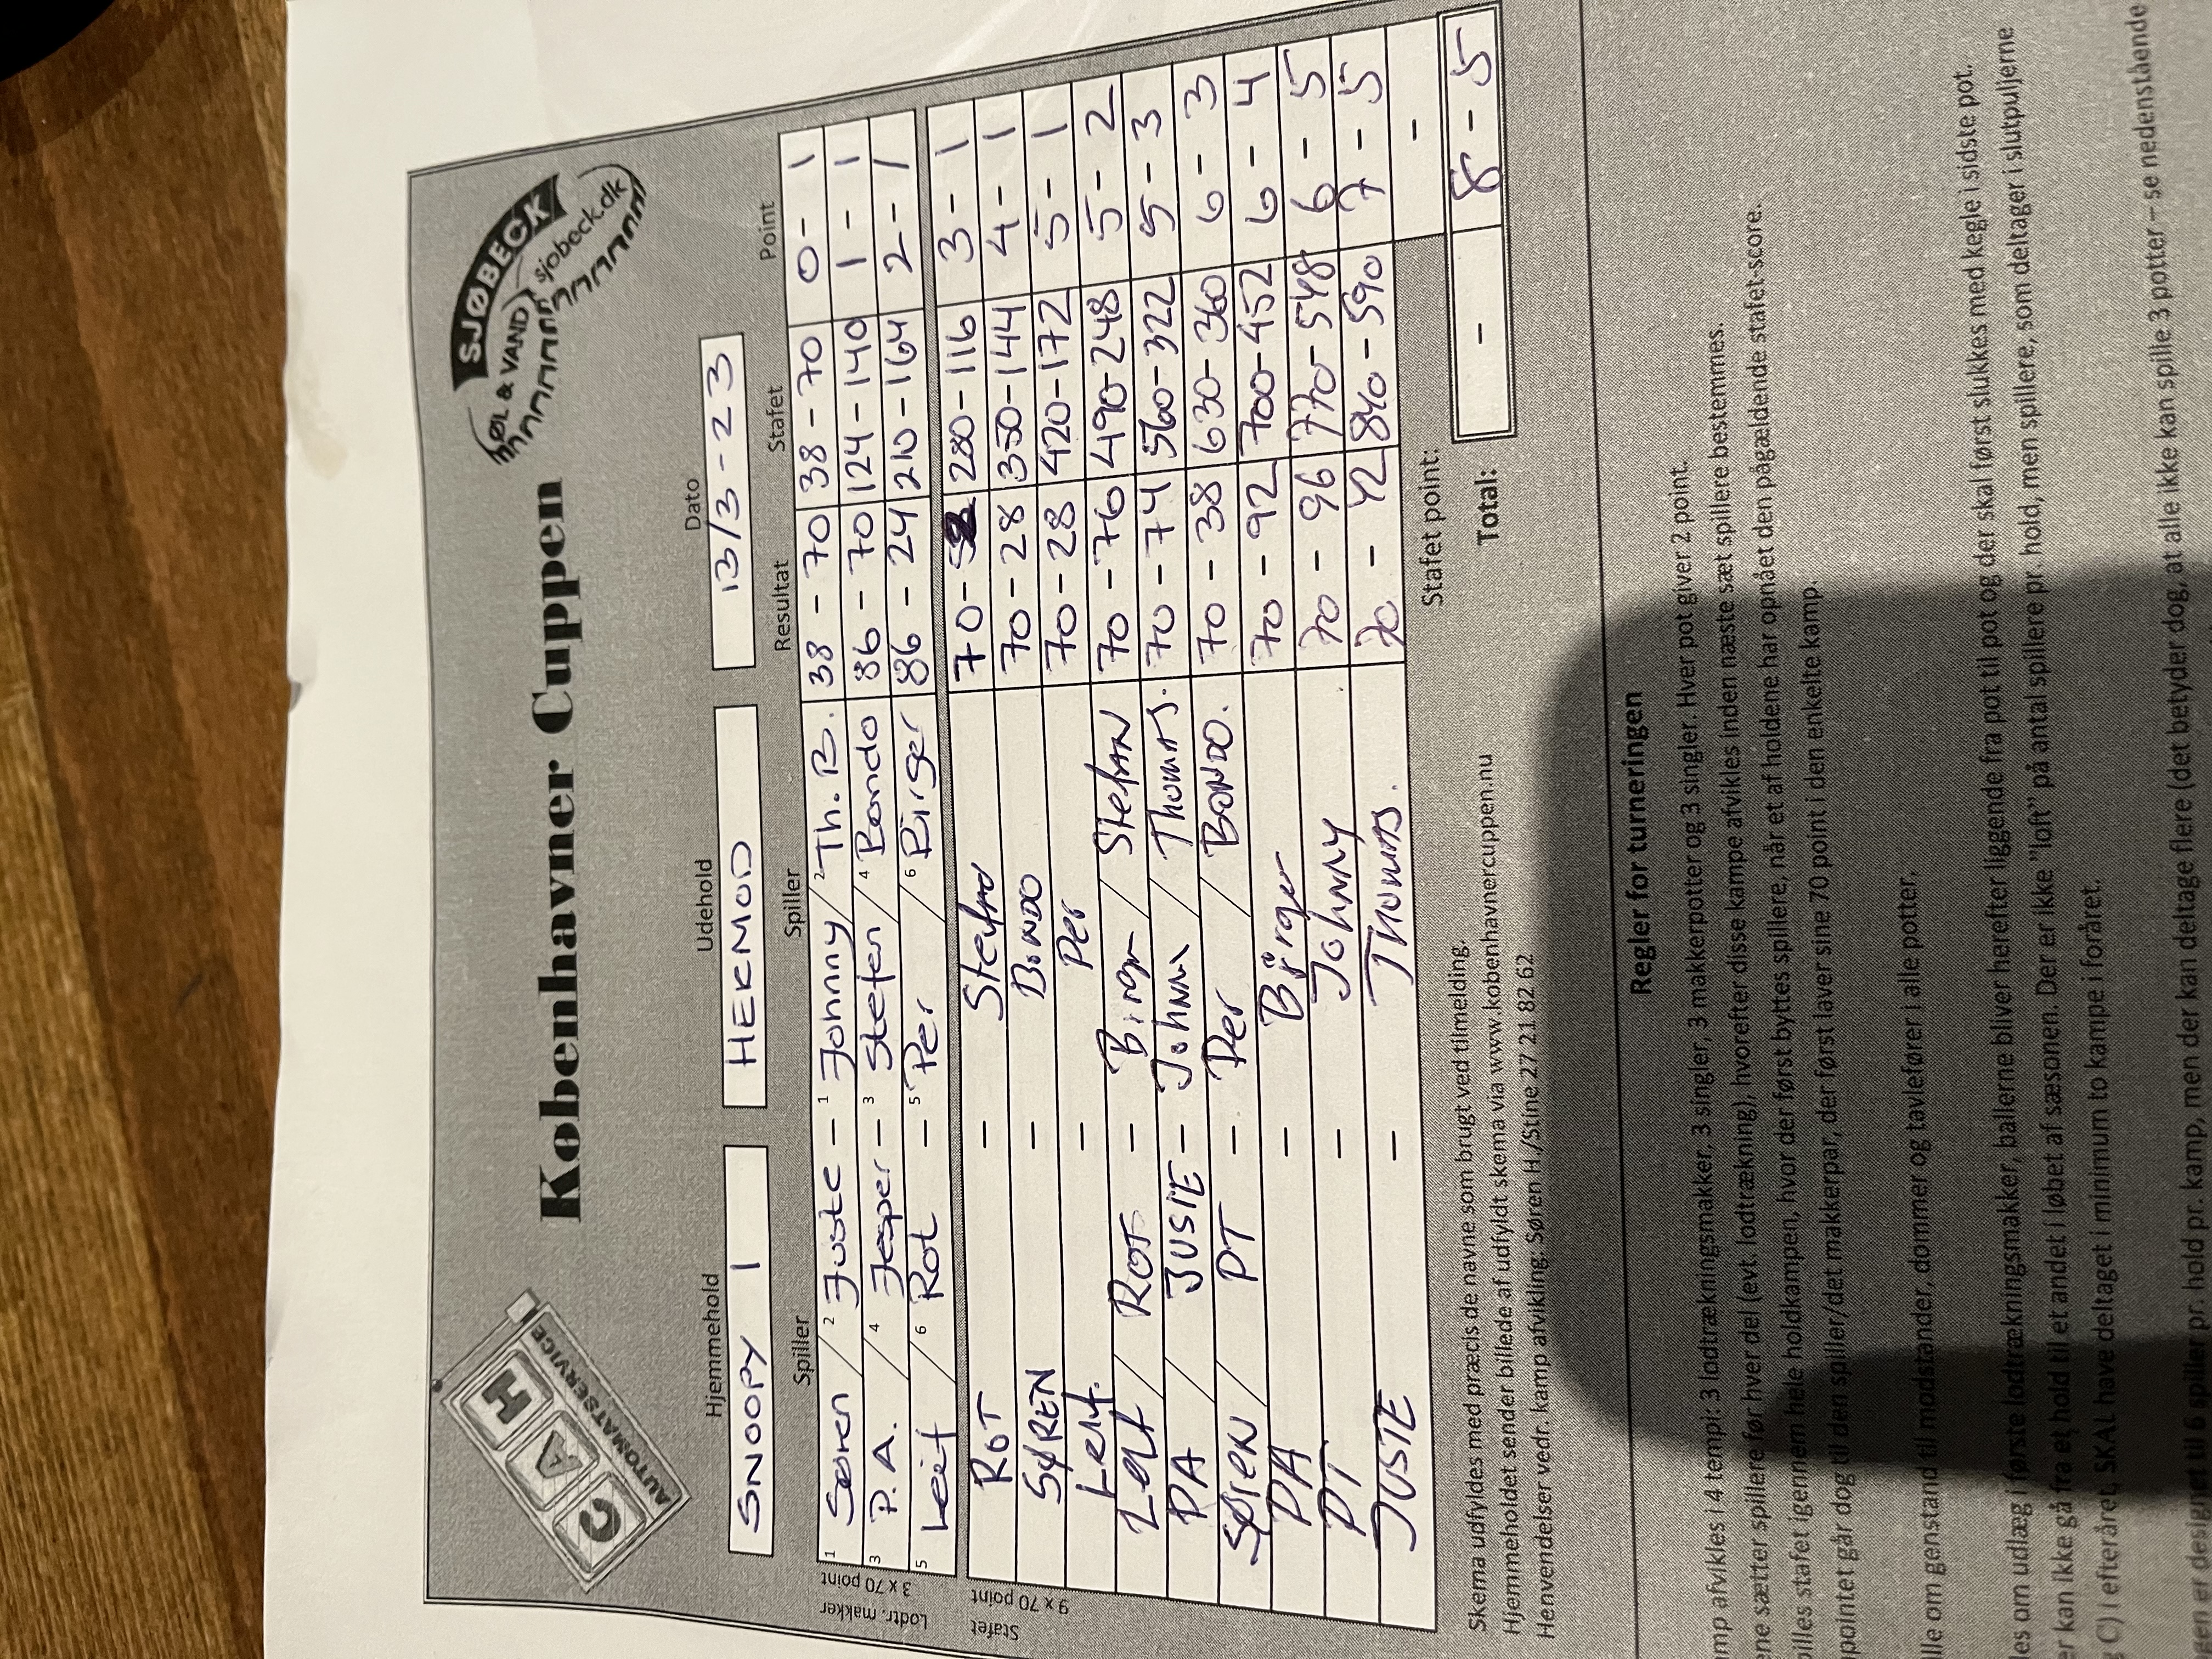 C A H
AUTOMATSERVICE
Københavner Cuppen
SJØBECK
ØL & VAND
sjobeck.dk
Hjemmehold Udehold Dato
SNOOPY 1 HERMOD 13/3-23
Spiller Spiller Resultat Stafet Point
Lodtr. makker
3 x 70 point
1 Søren / 2 Juste - 1 Johnny / 2 Th. B. 38 - 70 38 - 70 0 - 1
3 P.A. / 4 Jesper - 3 Stefen / 4 Bondo 86 - 70 124 - 140 1 - 1
5 Leif / 6 Rot - 5 Per / 6 Birger 86 - 24 210 - 164 2 - 1
Stafet
9 x 70 point
ROT - Stefan 70 - 280 - 116 3 - 1
SØREN - BONDO 70 - 28 350 - 144 4 - 1
Leif. - Per 70 - 28 420 - 172 5 - 1
Leif / ROT - Birger / Stefan 70 - 76 490 - 248 5 - 2
PA / JUSTE - Johnny / Thomas. 70 - 74 560 - 322 5 - 3
SØREN / PT - Per / BONDO. 70 - 38 630 - 360 6 - 3
PA - Birger 70 - 92 700 - 452 6 - 4
PT - Johnny 70 - 96 770 - 548 6 - 5
JUSTE - Thomas. 70 - 42 840 - 590 7 - 5
Stafet point: -
Total: - 8 - 5
Skema udfyldes med præcis de navne som brugt ved tilmelding.
Hjemmeholdet sender billede af udfyldt skema via www.kobenhavnercuppen.nu
Henvendelser vedr. kamp afvikling: Søren H./Stine 27 21 82 62
Regler for turneringen
mp afvikles i 4 tempi: 3 lodtrækningsmakker, 3 singler, 3 makkerpotter og 3 singler. Hver pot giver 2 point.
ne sætter spillere før hver del (evt. lodtrækning), hvorefter disse kampe afvikles inden næste sæt spillere bestemmes.
illes stafet igennem hele holdkampen, hvor der først byttes spillere, når et af holdene har opnået den pågældende stafet-score.
pointet går dog til den spiller/det makkerpar, der først laver sine 70 point i den enkelte kamp.
lle om genstand til modstander, dommer og tavlefører i alle potter.
les om udlæg i første lodtrækningsmakker, ballerne bliver herefter liggende fra pot til pot og der skal først slukkes med kegle i sidste pot.
er kan ikke gå fra et hold til et andet i løbet af sæsonen. Der er ikke "loft" på antal spillere pr. hold, men spillere, som deltager i slutpuljerne
C) i efteråret, SKAL have deltaget i minimum to kampe i foråret.
gen er designet til 6 spiller pr. hold pr. kamp, men der kan deltage flere (det betyder dog, at alle ikke kan spille 3 potter – se nedenstående